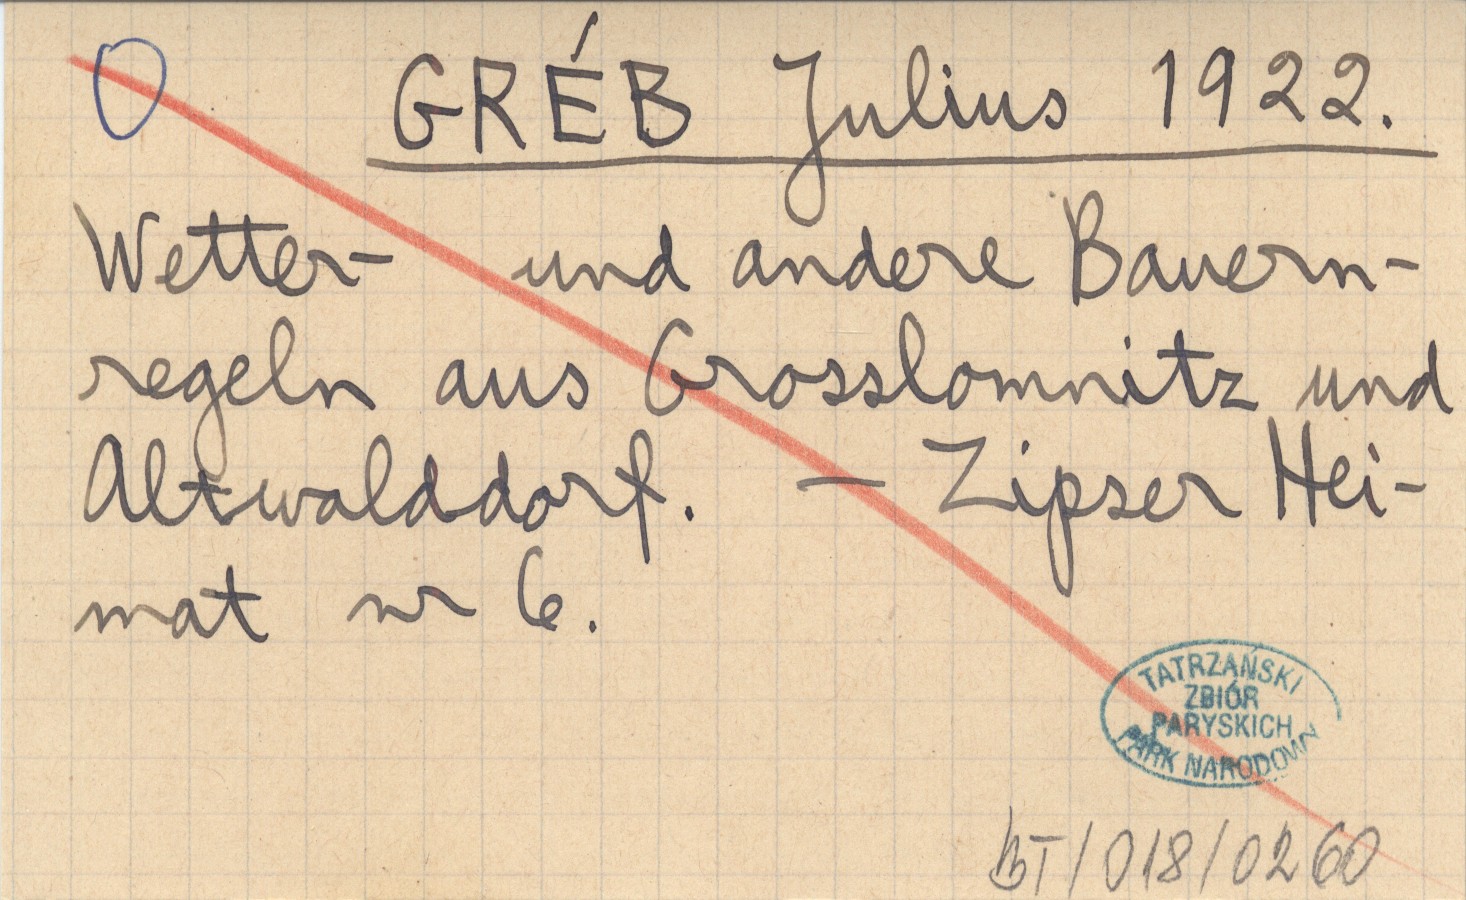 GRÉB Julius 1922.
Wetter- und andere Bauern-
regeln aus Grosslomnitz und
Altwalddorf. — Zipser Hei-
mat nr 6.
TATRZAŃSKI
ZBIÓR
PARYSKICH
PARK NARODOWY
BT/018/0260